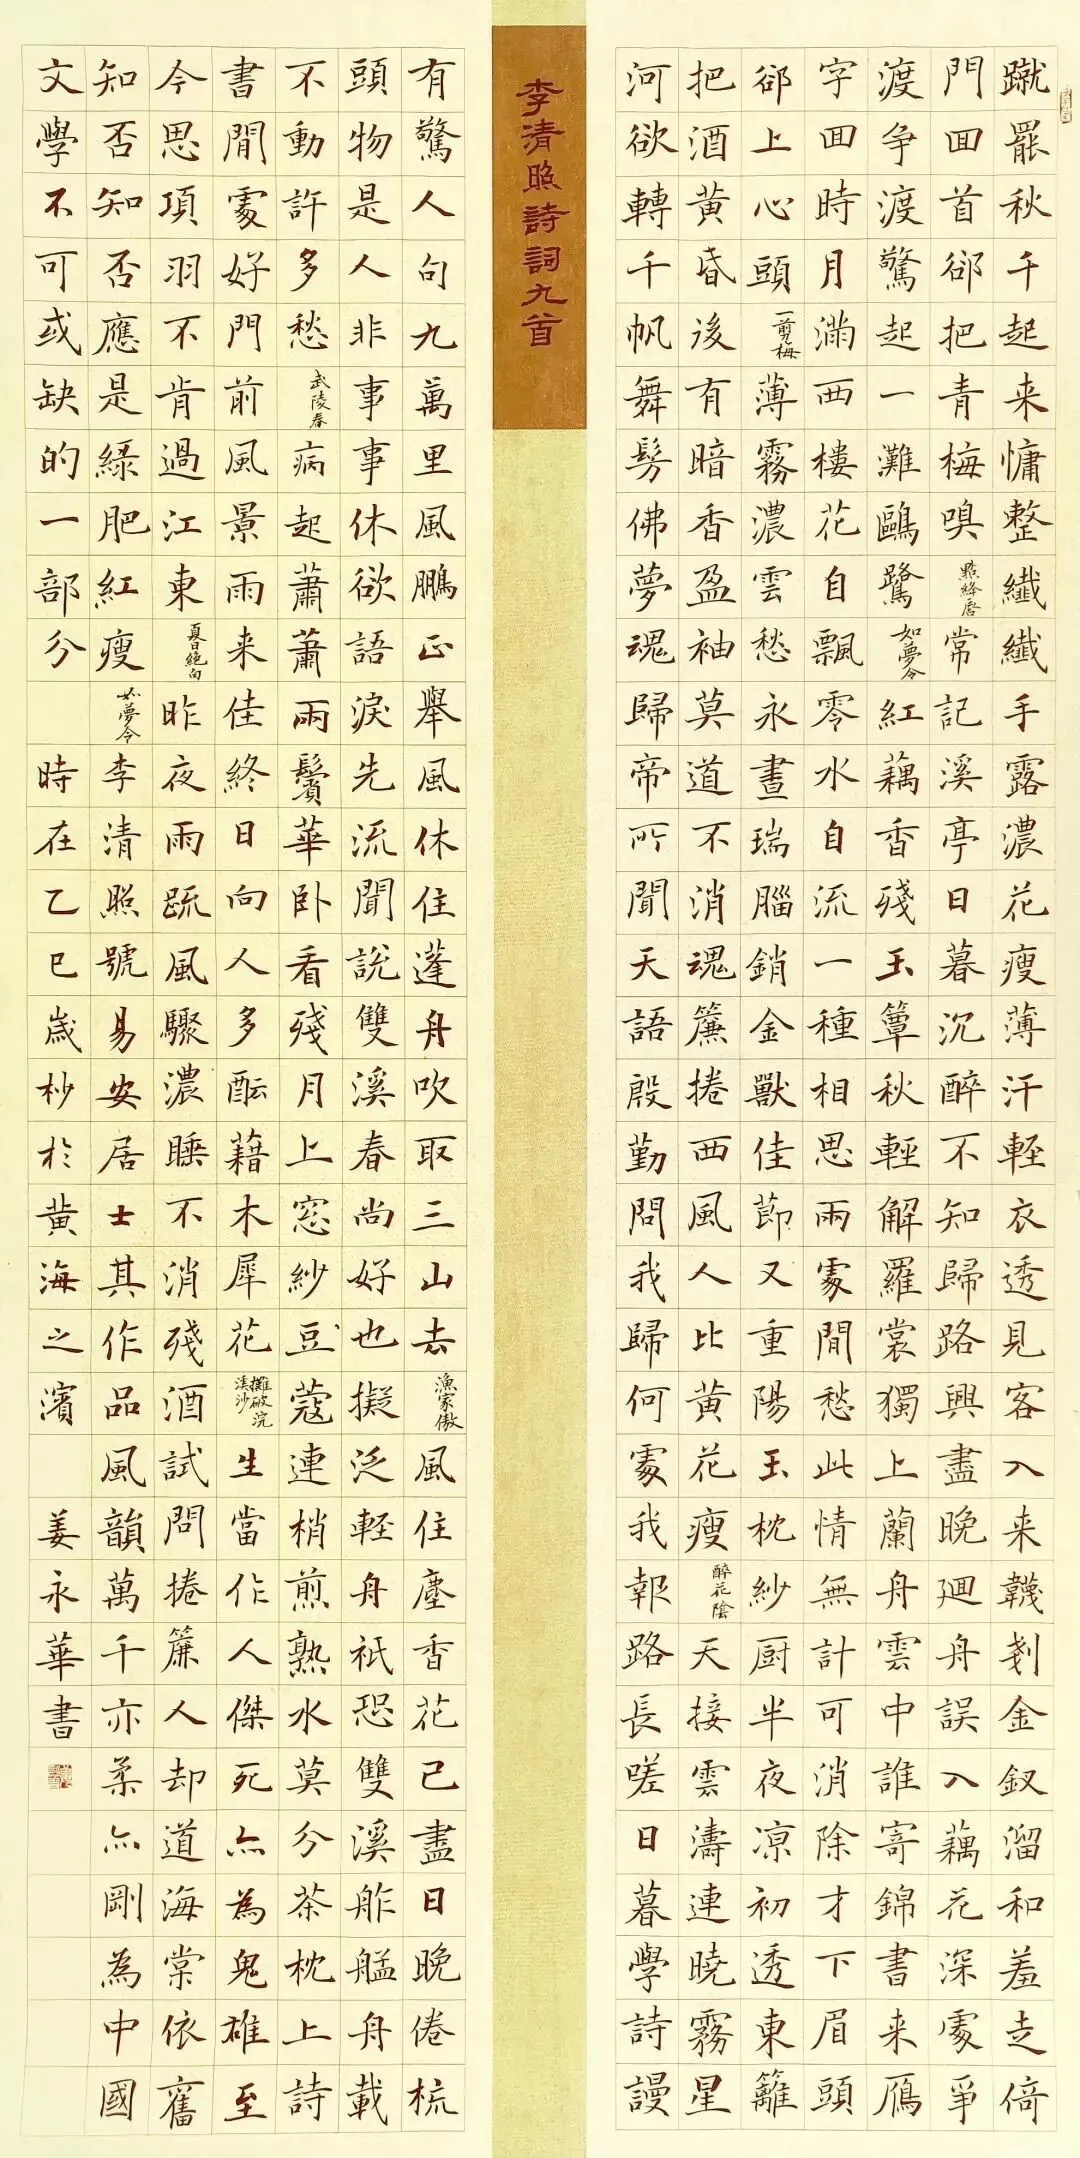 蹴罷秋千起来慵整纖纖手露濃花瘦薄汗軽衣透見客入来韈剗金釵溜和羞走倚
門囬首郤把青梅嗅 點絳唇 常記溪亭日暮沉醉不知歸路興盡晚廻舟誤入藕花深處爭
渡争渡驚起一灘鷗鷺 如夢令 紅藕香殘玉簟秋輕解羅裳獨上蘭舟雲中誰寄錦書来鴈
字囬時月滿西樓花自飄零水自流一種相思兩處閒愁此情無計可消除才下眉頭
郤上心頭 一剪梅 薄霧濃雲愁永晝瑞腦銷金獸佳節又重陽玉枕紗厨半夜凉初透東籬
把酒黃昏後有暗香盈袖莫道不消魂簾捲西風人比黃花瘦 醉花陰 天接雲濤連曉霧星
河欲轉千帆舞髣佛夢魂歸帝所聞天語殷勤問我歸何處我報路長嗟日暮學詩謾
李清照詩詞九首
有驚人句九萬里風鵬正舉風休住蓬舟吹取三山去 漁家傲 風住塵香花已盡日晚倦梳
頭物是人非事事休欲語淚先流聞說雙溪春尚好也擬泛軽舟祇恐雙溪舴艋舟載
不動許多愁 武陵春 病起蕭蕭兩鬢華卧看殘月上窓紗豆蔻連梢煎熟水莫分茶枕上詩
書閒處好門前風景雨来佳終日向人多酝藉木犀花 攤破浣溪沙 生當作人傑死亦為鬼雄至
今思項羽不肯過江東 夏日絕句 昨夜雨疏風驟濃睡不消殘酒試問捲簾人却道海棠依舊
知否知否應是綠肥紅瘦 如夢令 李清照號易安居士其作品風韻萬千亦柔亦剛為中國
文學不可或缺的一部分 時在乙巳歲杪於黃海之濱 姜永華書